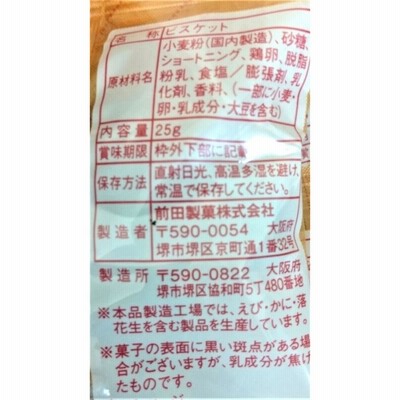 名称 ビスケット
原材料名 小麦粉(国内製造)、砂糖、
ショートニング、鶏卵、脱脂
粉乳、食塩/膨張剤、乳
化剤、香料、(一部に小麦・
卵・乳成分・大豆を含む)
内容量 25g
賞味期限 枠外下部に記載
保存方法 直射日光、高温多湿を避け、
常温で保存してください。
製造者 前田製菓株式会社
〒590-0054 大阪府
堺市堺区京町通1番32号
製造所 〒590-0822 大阪府
堺市堺区協和町5丁480番地
※本品製造工場では、えび・かに・落
花生を含む製品を生産しています。
※菓子の表面に黒い斑点がある場
合がございますが、乳成分が焦げ
たものです。